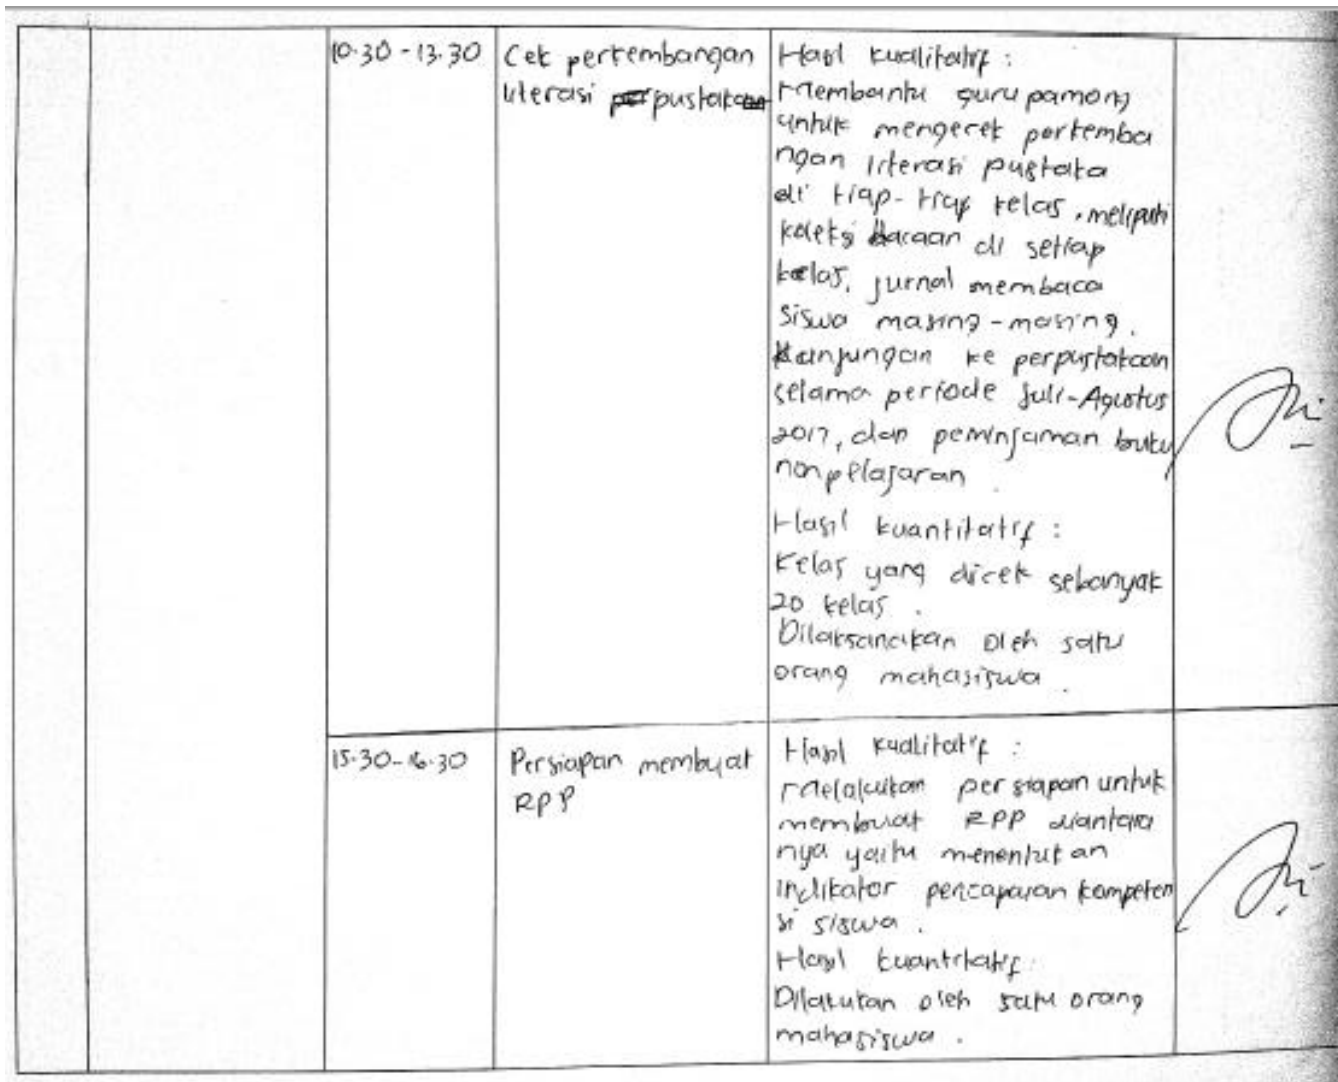 10.30 - 13.30
Cek perkembangan
literasi pustaka
Hasil kualitatif :
Membantu guru pamong
untuk mengecek perkemba
ngan literasi pustaka
di tiap-tiap kelas, meliputi
koleksi bacaan di setiap
kelas, jurnal membaca
siswa masing-masing.
Kunjungan ke perpustakaan
selama periode Juli-Agustus
2017, dan peminjaman buku
non pelajaran.
Hasil kuantitatif :
Kelas yang dicek sebanyak
20 kelas.
Dilaksanakan oleh satu
orang mahasiswa.
15.30-16.30
Persiapan membuat
RPP
Hasil kualitatif :
Melakukan persiapan untuk
membuat RPP diantara
nya yaitu menentukan
indikator pencapaian kompeten
si siswa.
Hasil kuantitatif:
Dilakukan oleh satu orang
mahasiswa.